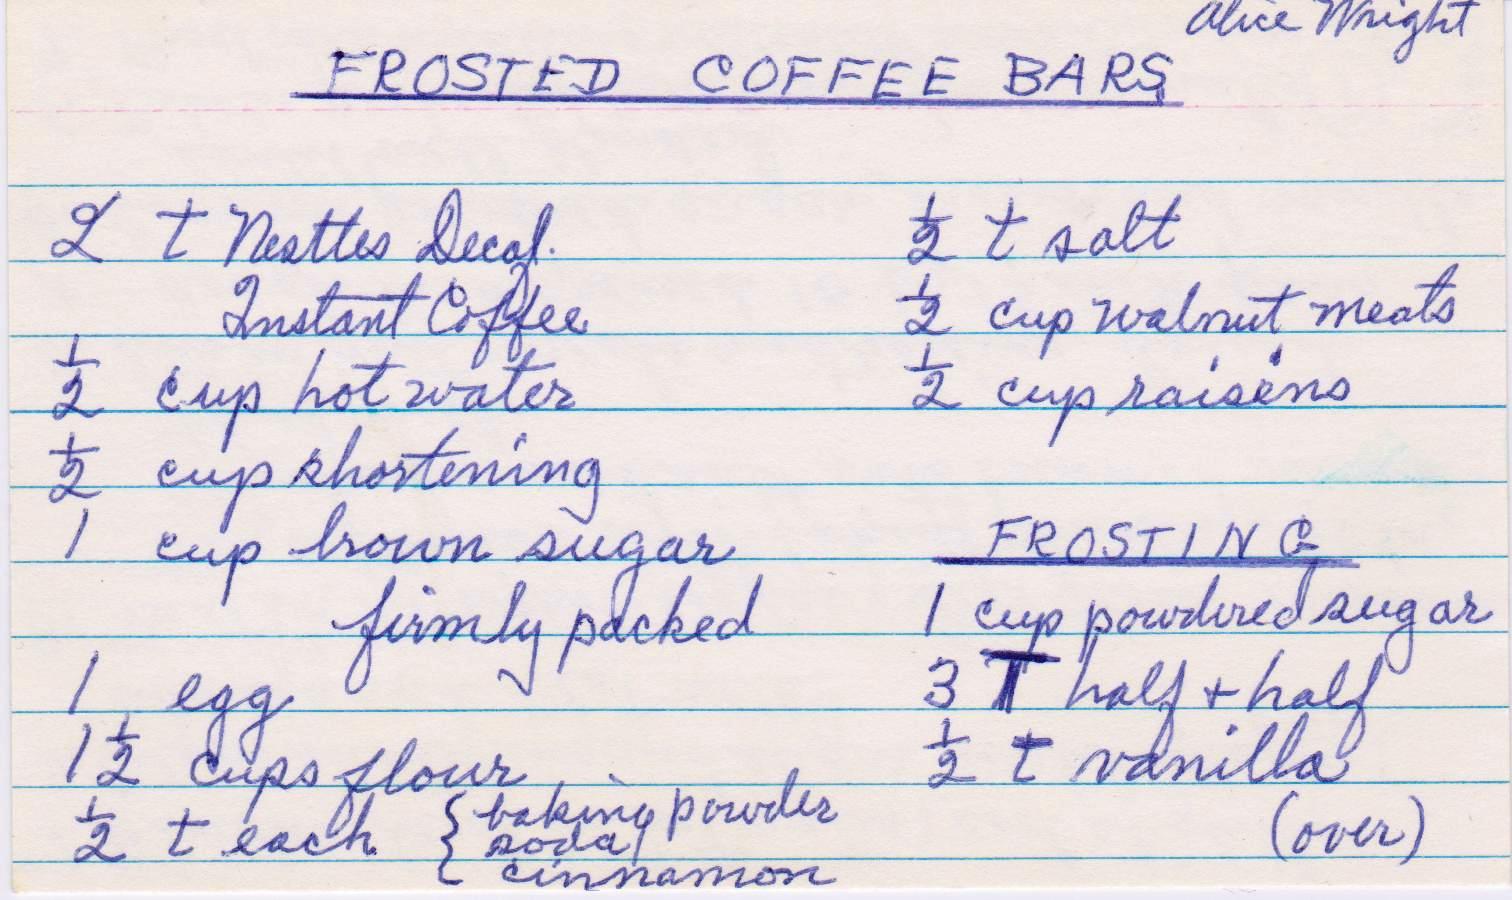 Alice Wright
FROSTED COFFEE BARS
2 t Nesttes Decaf.
Instant Coffee
1/2 cup hot water
1/2 cup shortening
1 cup brown sugar
firmly packed
1 egg
1 1/2 cups flour
1/2 t each { baking powder
soda
cinnamon
1/2 t salt
1/2 cup walnut meats
1/2 cup raisens
FROSTING
1 cup powdired sugar
3 T half + half
1/2 t vanilla
(over)